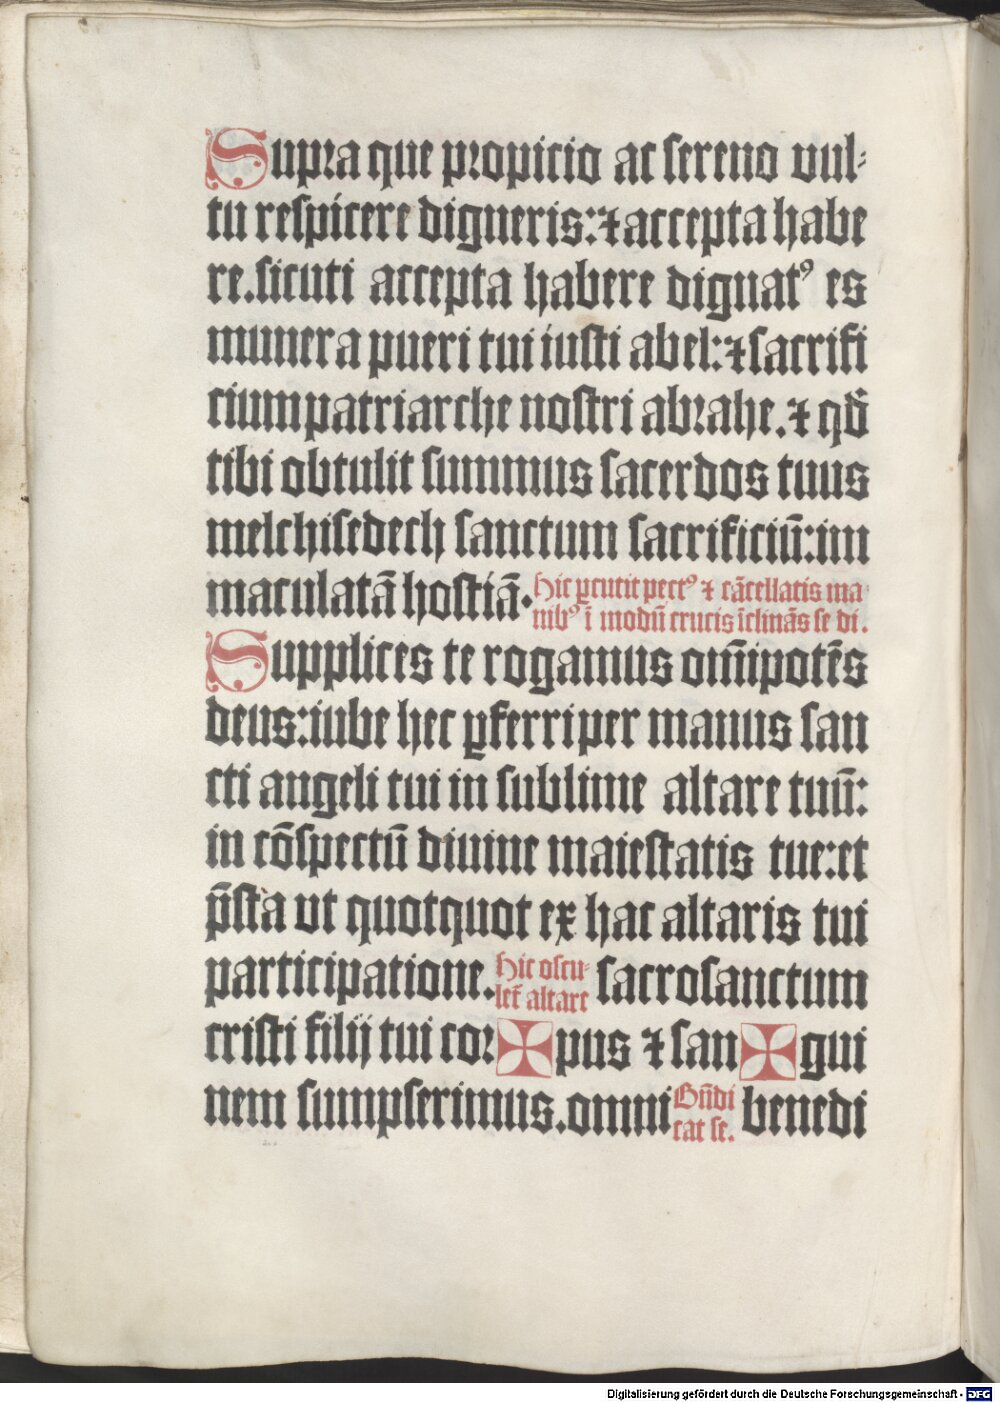 Supra que propicio ac sereno vul⸗
tu respicere digneris: ⁊ accepta habe
re. sicuti accepta habere dignatꝰ es
munera pueri tui iusti abel: ⁊ sacrifi
cium patriarche nostri abrahe. ⁊ qđ
tibi obtulit summus sacerdos tuus
melchisedech sanctum sacrificiū: im
maculatā hostiā. Hic ꝑcutit pectꝰ ⁊ cācellatis ma
nibꝰ ī modū crucis īclinās se di.
Supplices te rogamus om̄ipotēs
deus: iube hec ꝑferri per manus san
cti angeli tui in sublime altare tuū:
in cōspectū diuine maiestatis tue: et
p̄sta vt quotquot ex hac altaris tui
participatione. Hic oscu⸗
let̄ altare sacrosanctum
cristi filij tui cor✠pus ⁊ san✠gui
nem sumpserimus. omni Bn̄di
cat se. benedi
Digitalisierung gefördert durch die Deutsche Forschungsgemeinschaft - DFG